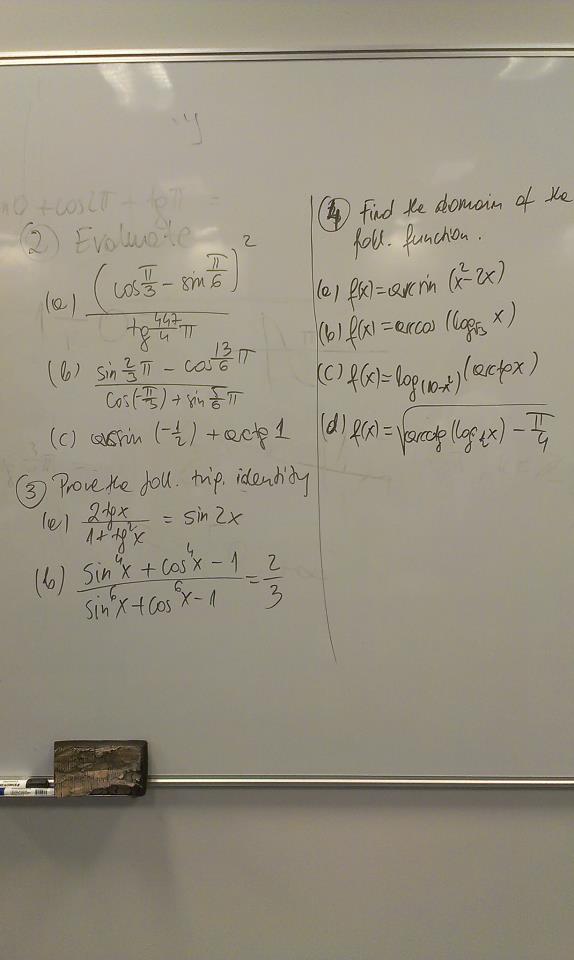 sin0 + cos2π + tgπ =
② Evaluate
(a) (cos π/3 − sin π/6)² / tg 447/4 π
(b) (sin 2/3 π − cos 13/6 π) / (cos(−π/3) + sin 5/6 π)
(c) arcsin (−1/2) + arctg 1
③ Prove the foll. trip. identity
(a) 2tgx / (1 + tg²x) = sin 2x
(b) (sin⁴x + cos⁴x − 1) / (sin⁶x + cos⁶x − 1) = 2/3
④ Find the domain of the
foll. function.
(a) f(x) = arcsin (x² − 2x)
(b) f(x) = arccos (log_√3 x)
(c) f(x) = log_(10−x²) (arctgx)
(d) f(x) = √(arcctg (log_½ x) − π/4)